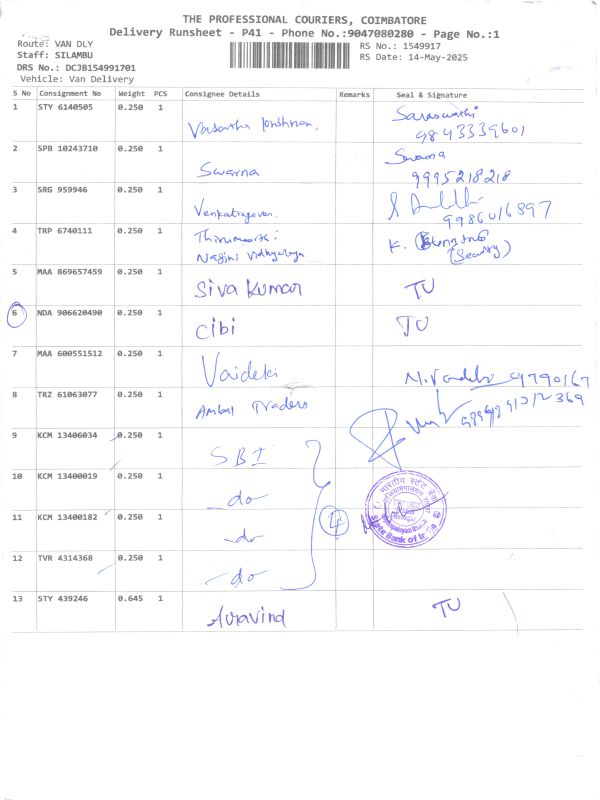 THE PROFESSIONAL COURIERS, COIMBATORE
Delivery Runsheet - P41 - Phone No.:9047080280 - Page No.:1
Route: VAN DLY
Staff: SILAMBU
DRS No.: DCJB154991701
Vehicle: Van Delivery
RS No.: 1549917
RS Date: 14-May-2025
S No Consignment No Weight PCS Consignee Details Remarks Seal & Signature
1 STY 6140505 0.250 1 Saraswathi
9843339601
2 SPB 10243710 0.250 1 Swarna Swarna
9995218218
3 SRG 959946 0.250 1 Venkatragavan.
4 TRP 6740111 0.250 1 Thirumoorthi K.
(Security)
5 MAA 869657459 0.250 1 Siva Kumar TU
6 NDA 906620490 0.250 1 Cibi TU
7 MAA 600551512 0.250 1 Vaideki
8 TRZ 61063077 0.250 1 Ambal Traders
9 KCM 13406034 0.250 1 SBI
10 KCM 13400019 0.250 1 -do-
11 KCM 13400182 0.250 1 -do-
4
12 TVR 4314368 0.250 1 -do-
भारतीय स्टेट बैंक
State Bank of India
13 STY 439246 0.645 1 Aravind TU